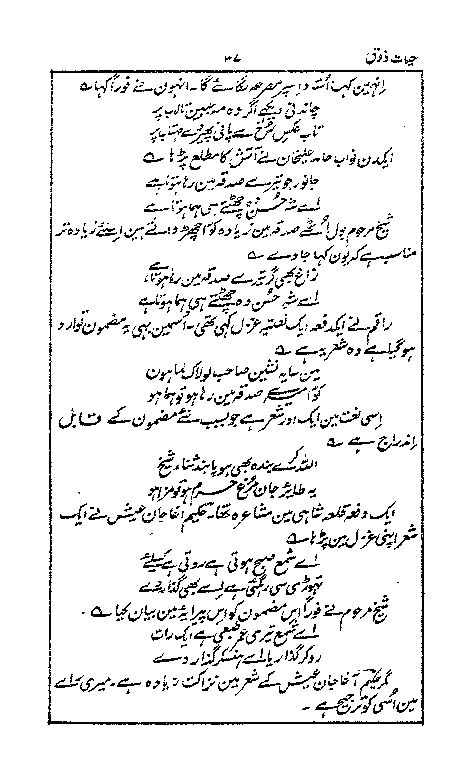 حیات ذوق
۳۷
انہین کہا استاد اسپر مصرعہ لگائے گا۔ انہون نے فوراً کہا ؎
چاندنی دیکھے اگر وہ مہ جبین تالاب پر
تاب عکس رخ سے پانی پھیر دے مہتاب پر
ایکدن نواب حامد علیخان نے آتش کا مطلع پڑھا ؎
جانور جو تیرے صدقہ مین رہا ہوتا ہے
اے شہ حسن وہ چھٹتے ہی ہما ہوتا ہے
شیخ مرحوم بول اٹھے صدقہ مین زیادہ کوا چھڑواتے ہین اسلئے زیادہ تر
مناسب ہے کہ یون کہا جاوے ؎
زاغ بھی گر تیرے صدقہ مین رہا ہوتا ہے
اے شہ حسن وہ چھٹتے ہی ہما ہوتا ہے
راقم نے ایکدفعہ ایک نعتیہ غزل کہی تھی۔ اسمین یہی یہ مضمون توارد
ہو گیا ہے وہ شعر یہ ہے ؎
مین سایہ نشین صاحب لولاک لما ہون
کوا مرے صدقہ مین رہا ہو تو ہما ہو
اسی نعت مین ایک اور شعر ہے جو بسبب نئے مضمون کے قابل
اندراج ہے ؎
اللہ کرے بندہ بھی ہو پابند ثناء شیخ
یہ طائر جان مرغ حرم ہو تو مزا ہو
ایک دفعہ قلعہ شاہی مین مشاعرہ تھا۔ حکیم آغا جان عیش نے ایک
شعر اپنی غزل مین پڑھا ؎
اے شمع صبح ہوتی ہے روتی ہے کسلئے
تھوڑی سی رہگئی ہے اسے بھی گذار دے
شیخ مرحوم نے فوراً اس مضمون کو اس پیرایہ مین بیان کیا ؎
اے شمع تیری عمر طبیعی ہے ایک رات
رو کر گذار یا اسے ہنسکر گذار دے
مگر حکیم آغا جان عیش کے شعر مین نزاکت زیادہ ہے۔ میری رائے
مین اسی کو ترجیح ہے۔